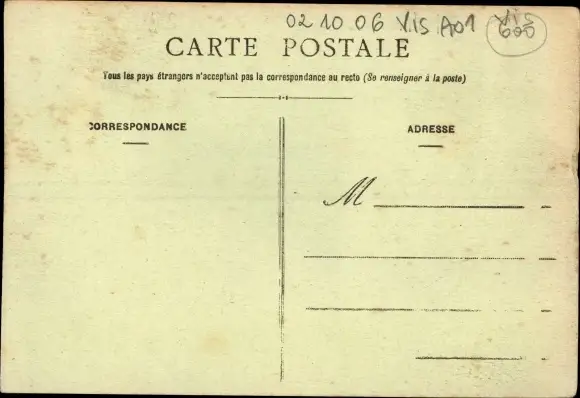 02 10 06 VIS A01 VIS
600
CARTE POSTALE
Tous les pays étrangers n'acceptent pas la correspondance au recto (Se renseigner à la poste)
CORRESPONDANCE
ADRESSE
M